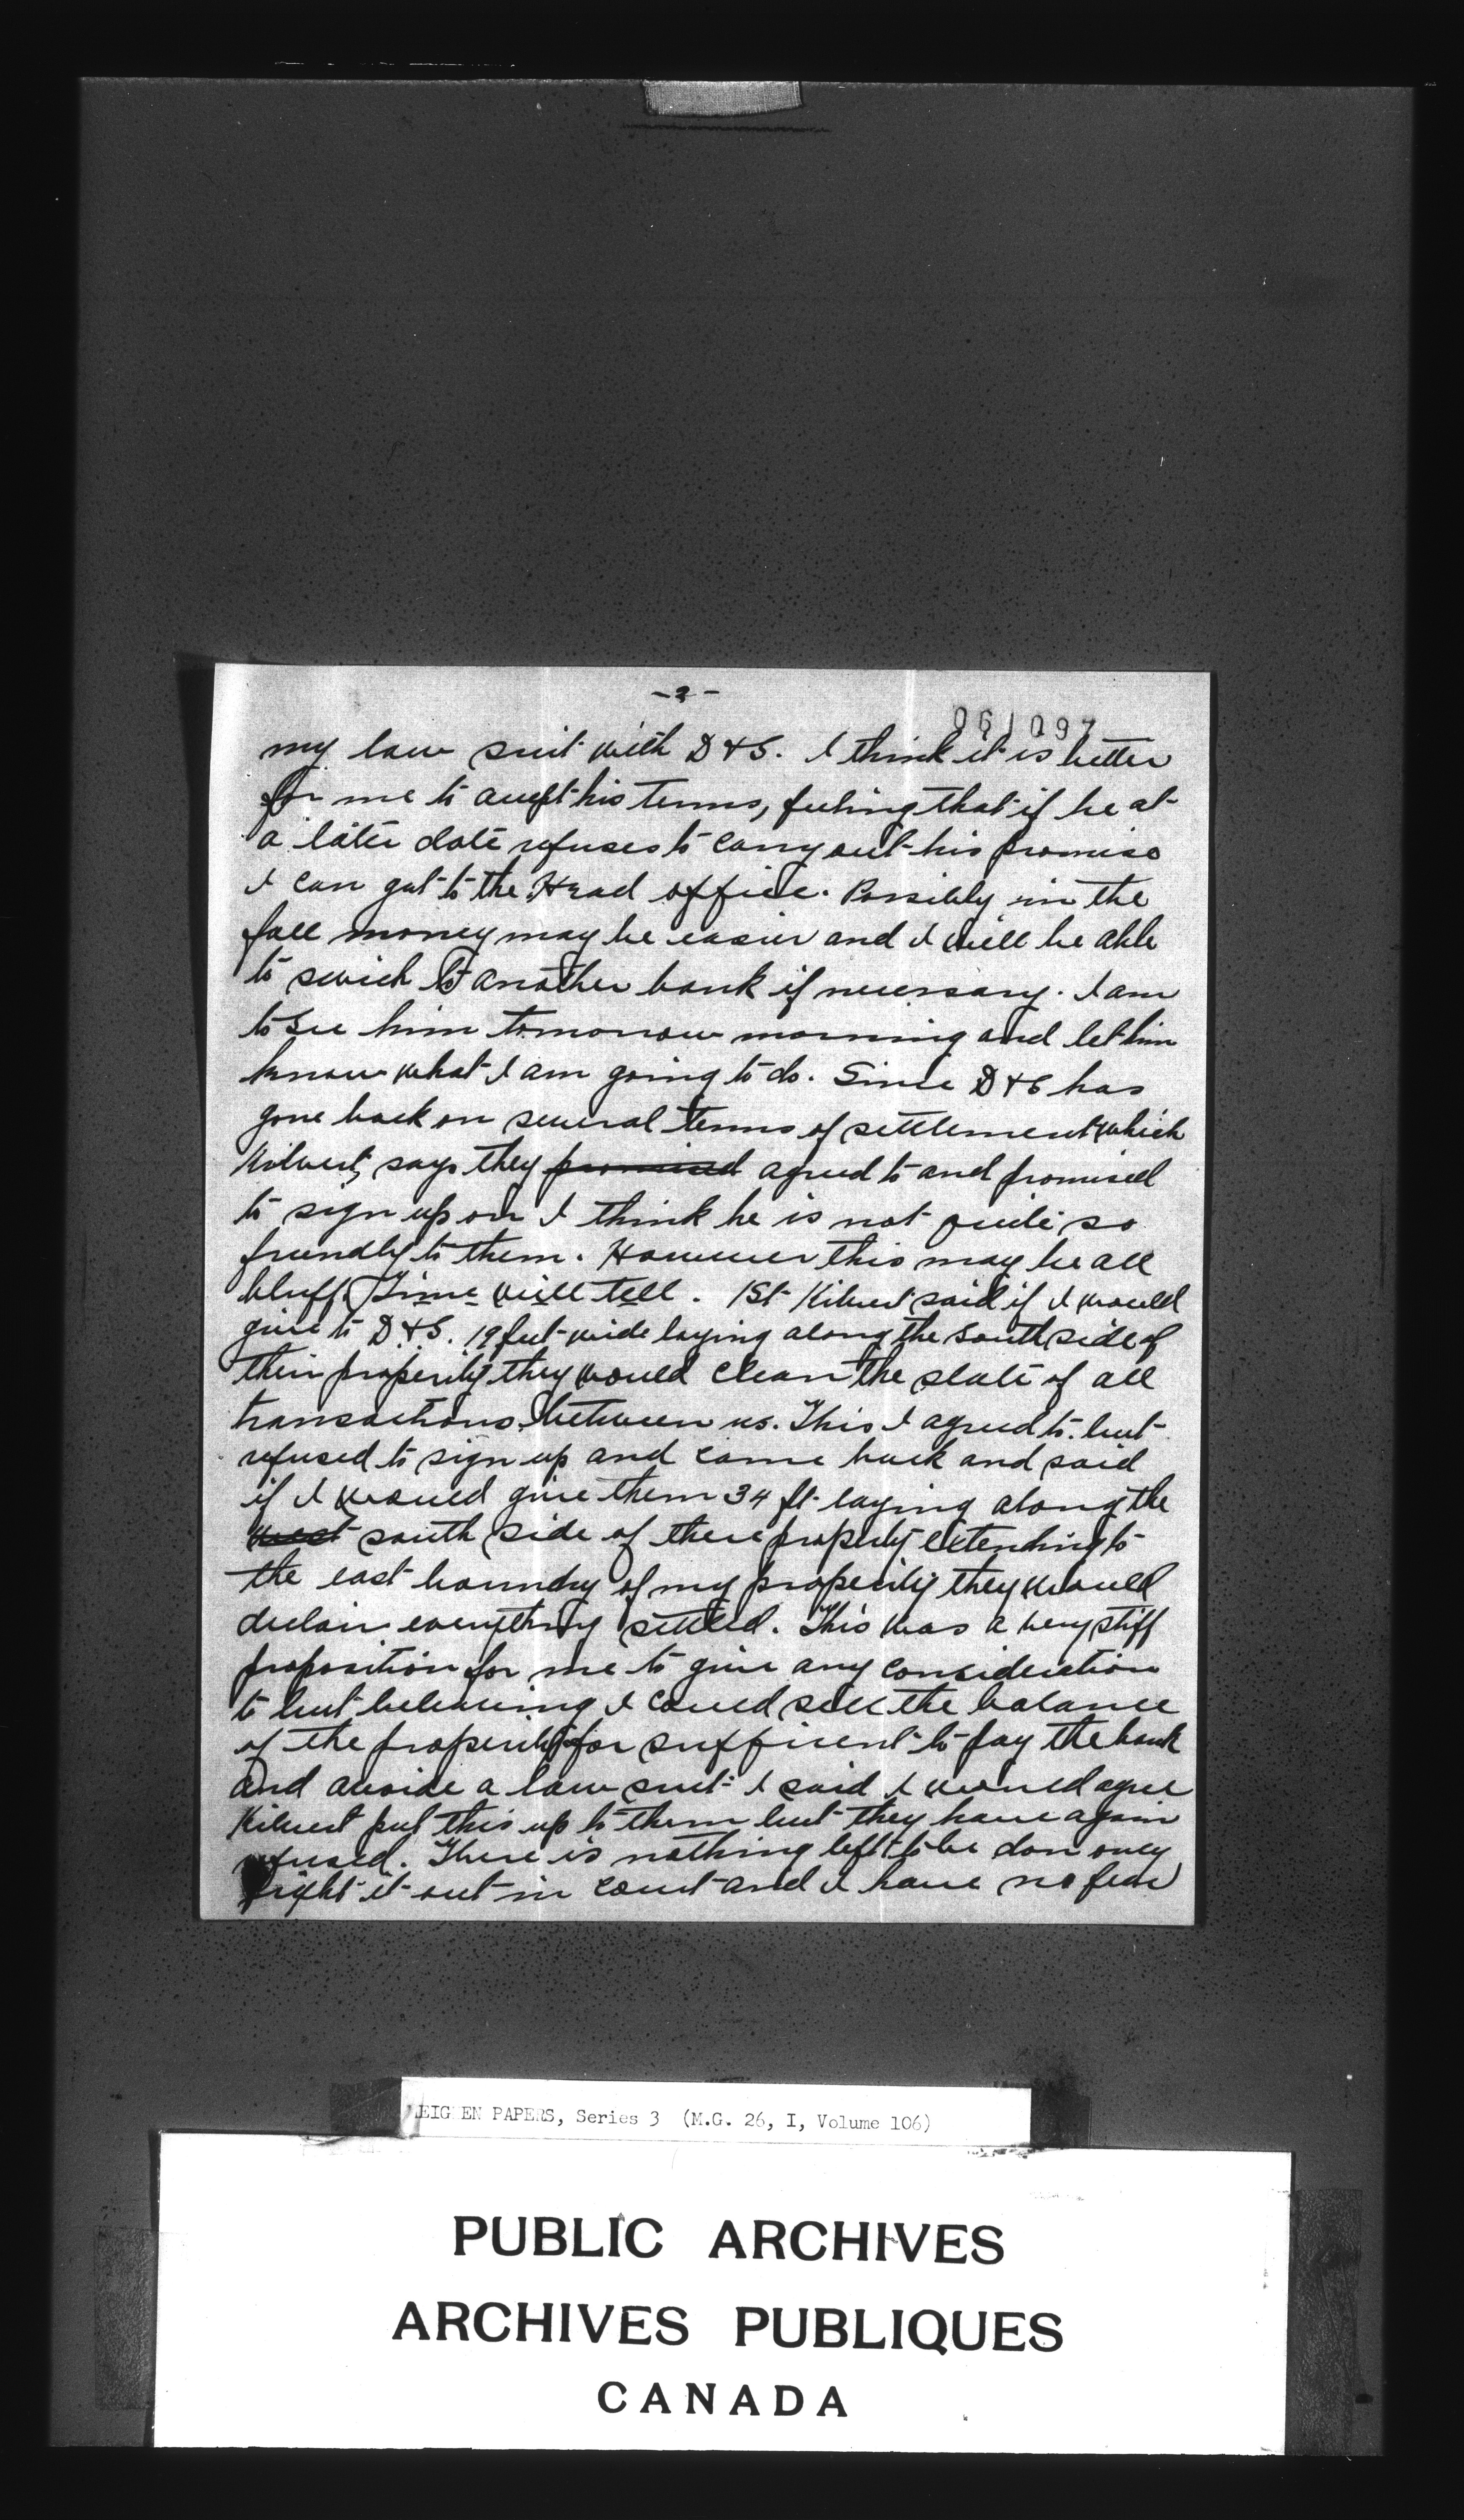 -2-
061097
my law suit with D & S. I think it is better
for me to accept his terms, feeling that if he at
a later date refuses to carry out his promise
I can get to the Head office. Possibly in the
fall money may be easier and I will be able
to swich to another bank if necessary. I am
to see him tomorrow morning and let him
know what I am going to do. Since D & S has
gone back on several terms of settlement which
Kilvert, says they promised agreed to and promised
to sign up on I think he is not quite so
friendly to them. However this may be all
bluff. Time will tell. 1st Kilvert said if I would
give to D & S. 19 feet wide laying along the south side of
their properity they would clean the slate of all
transactions between us. This I agreed to but
refused to sign up and came back and said
if I would give them 34 ft laying along the
west south side of there properity extending to
the east boundry of my properity they would
declair everything settled. This was a very stiff
proposition for me to give any consideration
to but believing I could sell the balance
of the properity for sufficient to pay the bank
and avoide a law suit I said I would agree
Kilvert put this up to them but they have again
refused. There is nothing left to be don only
fight it out in court and I have no fear
MEIGHEN PAPERS, Series 3 (M.G. 26, I, Volume 106)
PUBLIC ARCHIVES
ARCHIVES PUBLIQUES
CANADA